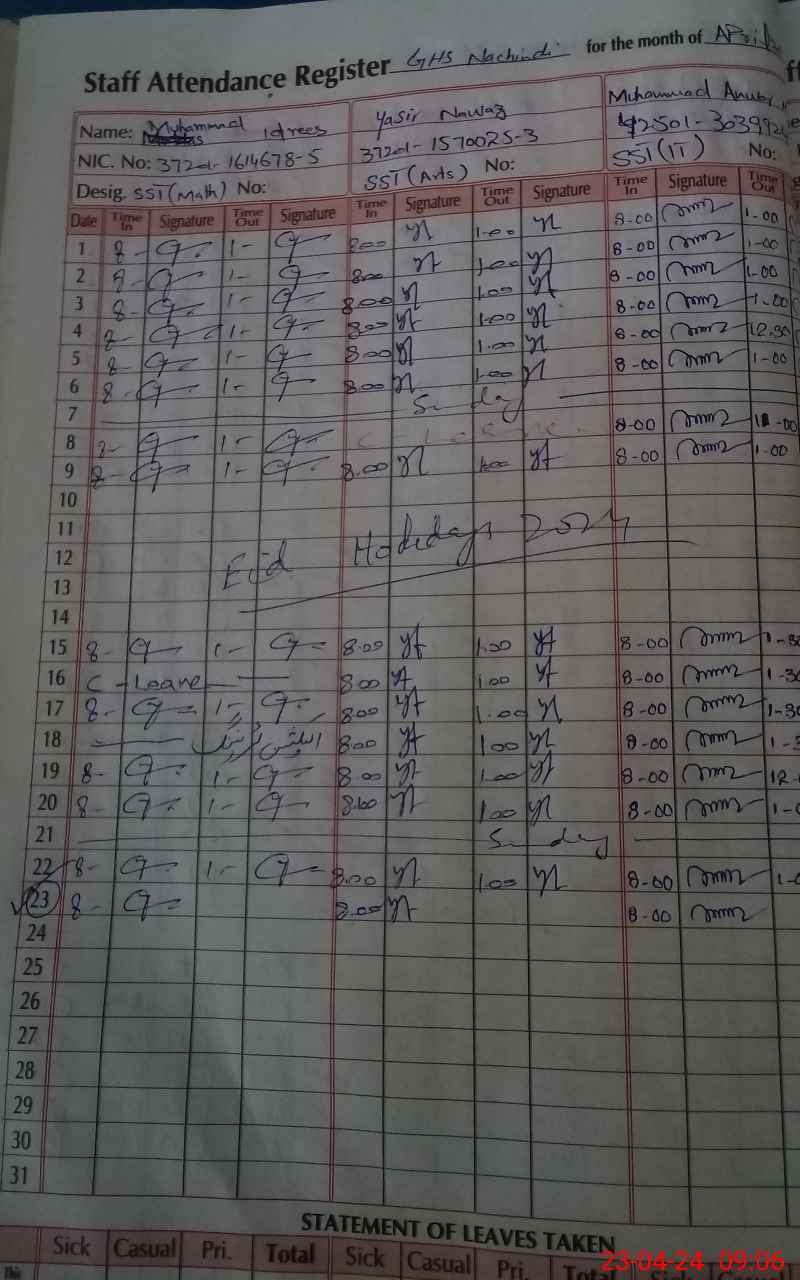 Staff Attendance Register GHS Nachindi for the month of April
Name: Muhammad Idrees Yasir Nawaz Muhammad
NIC. No: 37201-1614678-5 37201-1570025-3 42501-303992
Desig. SST (Math) No: SST (Arts) No: SST (IT) No:
Date Time In Signature Time Out Signature Time In Signature Time Out Signature Time In Signature Time Out
1 8- 1- 8.00 1.00 8-00 1-00
2 8- 1- 8.00 1.00 8-00 1-00
3 8- 1- 8.00 1.00 8-00 1-00
4 8- 1- 8.00 1.00 8-00 1-00
5 8- 1- 8.00 1.00 8-00 12-30
6 8- 1- 8.00 1.00 8-00 1-00
7 Sunday
8 8- 1- 8-00 -00
9 8- 1- 8.00 1.00 8-00 1-00
10
11
Eid Holidays 2024
12
13
14
15 8- 1- 8.00 1.00 8-00 1-30
16 C-Leave 8.00 1.00 8-00 1-30
17 8- 1- 8.00 1.00 8-00 1-30
18 8.00 1.00 8-00 1-3
19 8- 1- 8.00 1.00 8-00 12-
20 8- 1- 8.00 1.00 8-00 1-0
21 Sunday
22 8- 1- 8.00 1.00 8-00 1-0
23 8- 8.00 8-00
24
25
26
27
28
29
30
31
STATEMENT OF LEAVES TAKEN
Sick Casual Pri. Total Sick Casual Pri. Total
23-04-24 09:06